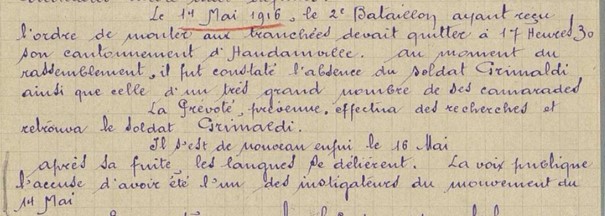 Le 1er Mai 1916, le 2e Bataillon ayant reçu
l'ordre de monter aux tranchées devait quitter à 17 Heures 30
son cantonnement d'Haudainville. au moment du
rassemblement, il fut constaté l'absence du soldat Grimaldi
ainsi que celle d'un très grand nombre de ses camarades
La Prévoté, prévenue, effectua des recherches et
retrouva le soldat Grimaldi.
Il s'est de nouveau enfui le 16 Mai
après sa fuite, les langues se délièrent. La voix publique
l'accuse d'avoir été l'un des instigateurs du mouvement du
1er Mai